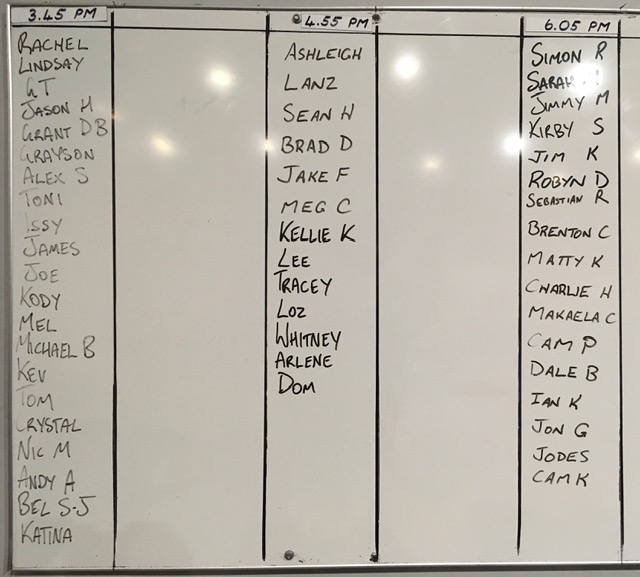 3.45 PM
RACHEL
LINDSAY
GT
JASON H
GRANT DB
GRAYSON
ALEX S
TONI
ISSY
JAMES
JOE
KODY
MEL
MICHAEL B
KEV
TOM
CRYSTAL
NIC M
ANDY A
BEL S-J
KATINA
4.55 PM
ASHLEIGH
LANZ
SEAN H
BRAD D
JAKE F
MEG C
KELLIE K
LEE
TRACEY
LOZ
WHITNEY
ARLENE
DOM
6.05 PM
SIMON R
SARAH
JIMMY M
KIRBY S
JIM K
ROBYN D
SEBASTIAN R
BRENTON C
MATTY K
CHARLIE H
MAKAELA C
CAM P
DALE B
IAN K
JON G
JODES
CAM K